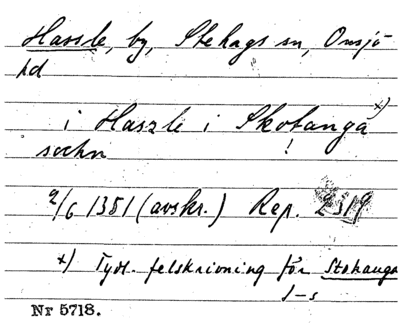 Hassle, by, Stehags sn, Onsjö
hd
i Haszle i Skofanga x)
sochn !
9/6 1351 (avskr.) Rep. 2319
x) Tydl. felskrivning för Stohauga
1-s
Nr 5718.